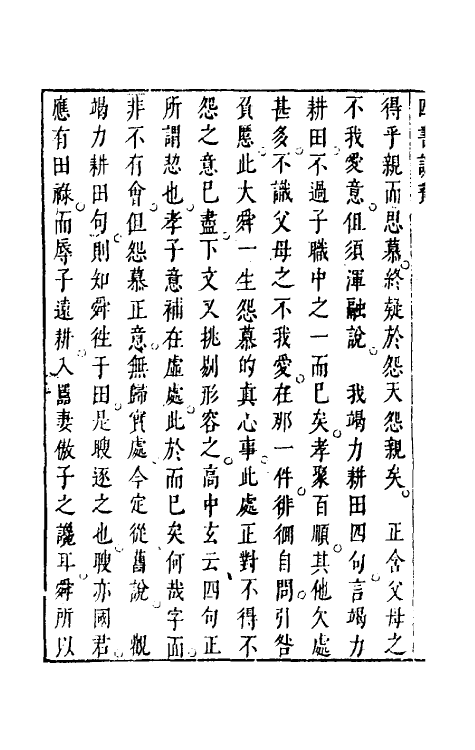 得乎親而思慕終疑於怨天怨親矣　正含父母之
不我愛意但須渾融說　我竭力耕田四句言竭力
耕田不過子職中之一而已矣孝聚百順其他欠處
甚多不識父母之不我愛在那一件徘徊自問引咎
負慝此大舜一生怨慕的真心事此處正對不得不
怨之意已盡下文又挑剔形容之高中玄云四句正
所謂恝也孝子意補在虛處此於而已矣何哉字面
非不有會但怨慕正意無歸實處今定從舊說　觀
竭力耕田句則知舜徃于田是瞍逐之也瞍亦國君
應有田祿而辱子遠耕入嚚妻傲子之讒耳舜所以